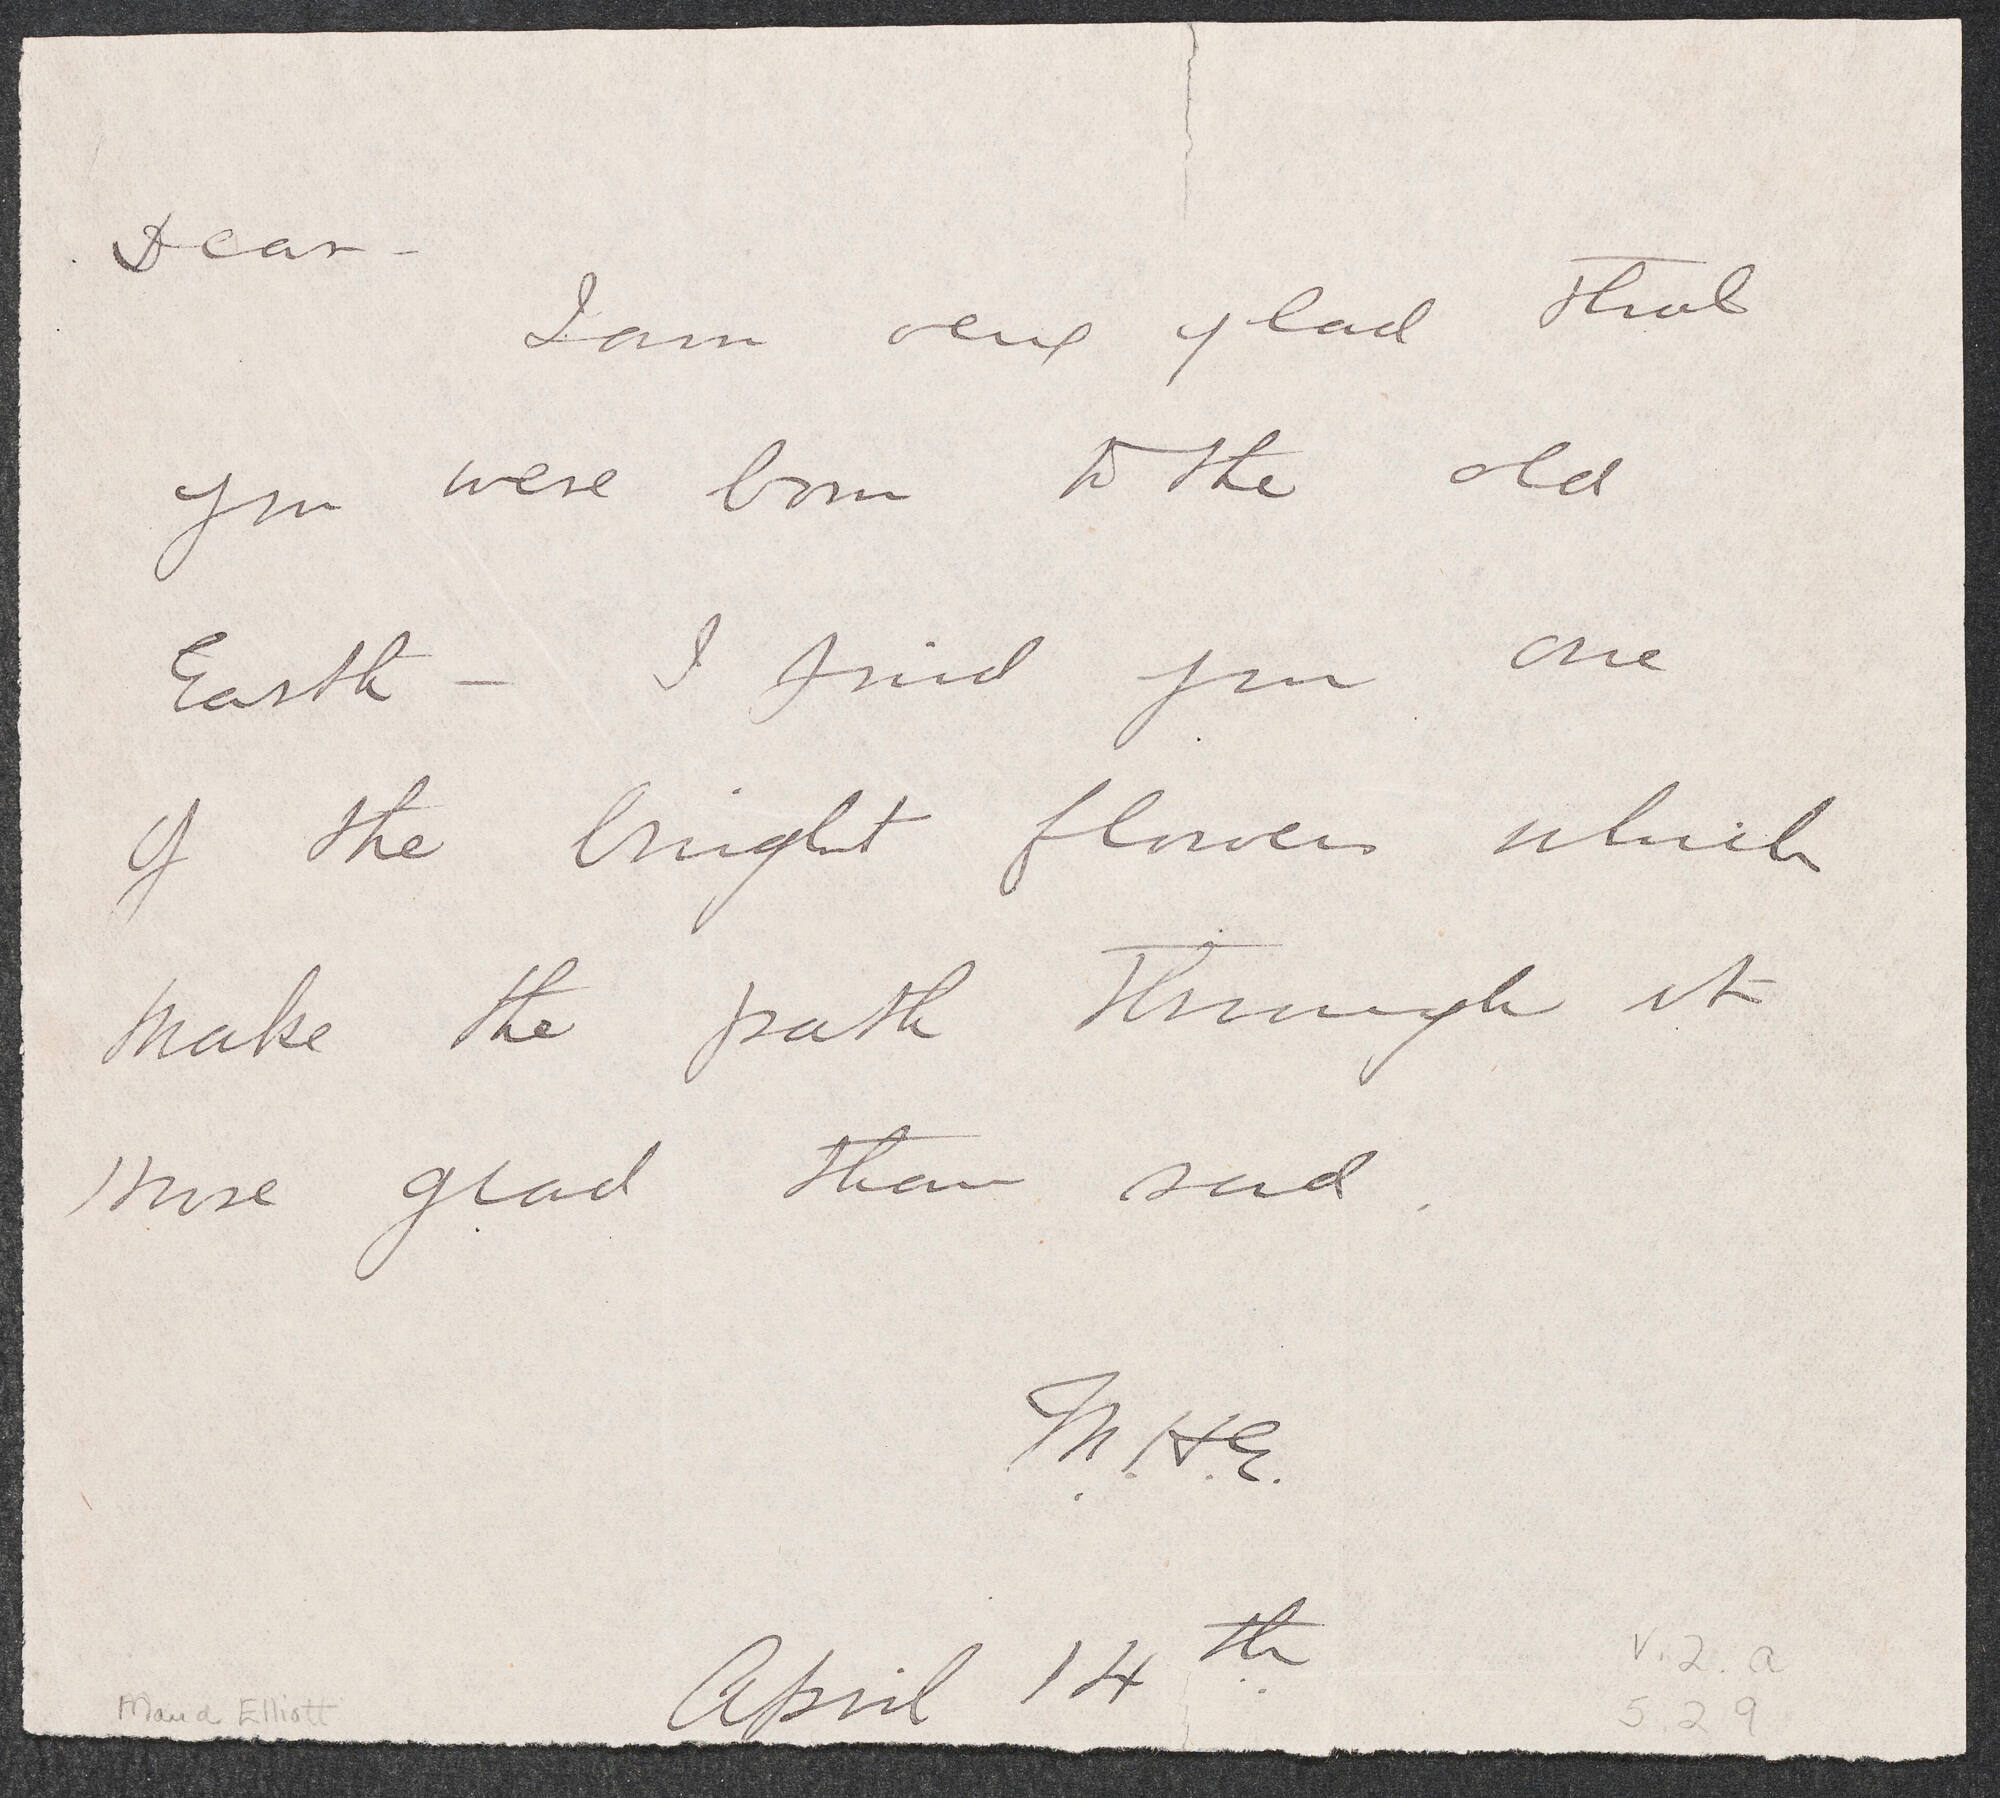 Dear -
I am very glad that
you were born to the old
Earth - I find you one
of the bright flowers which
make the path through it
more glad than sad.
M.H.E.
April 14th
Maud Elliott
V.2.a
5.29